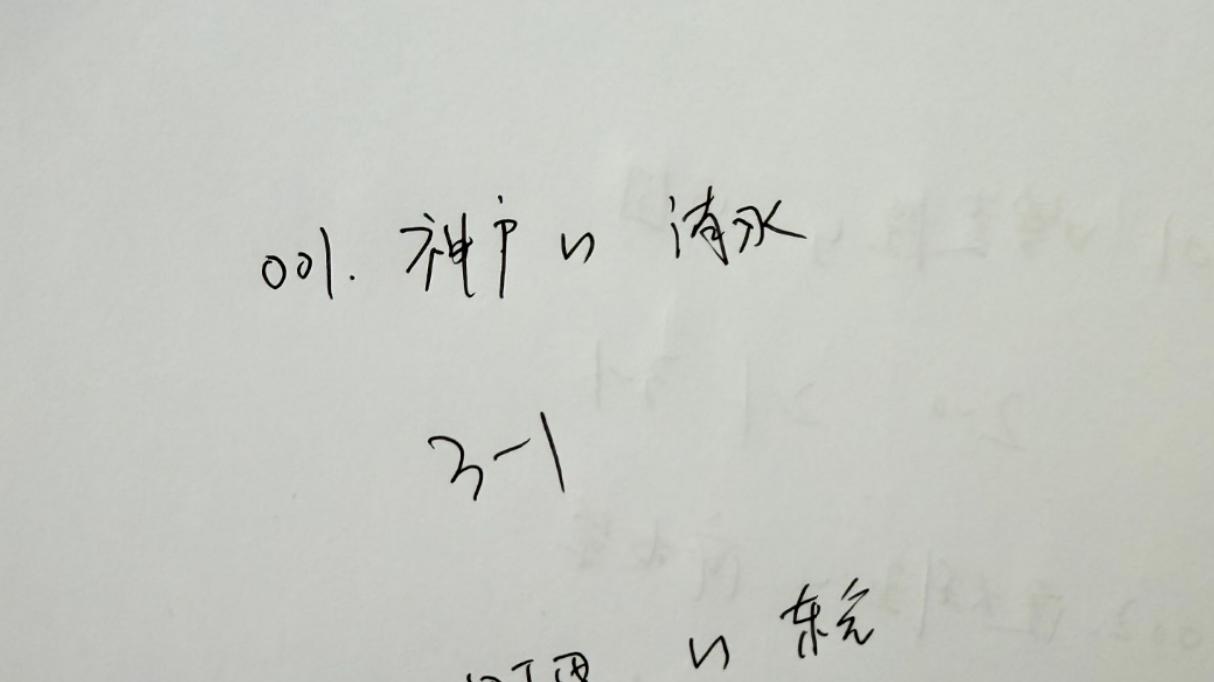 001. 神户 vs 清水
3-1
vs 东京